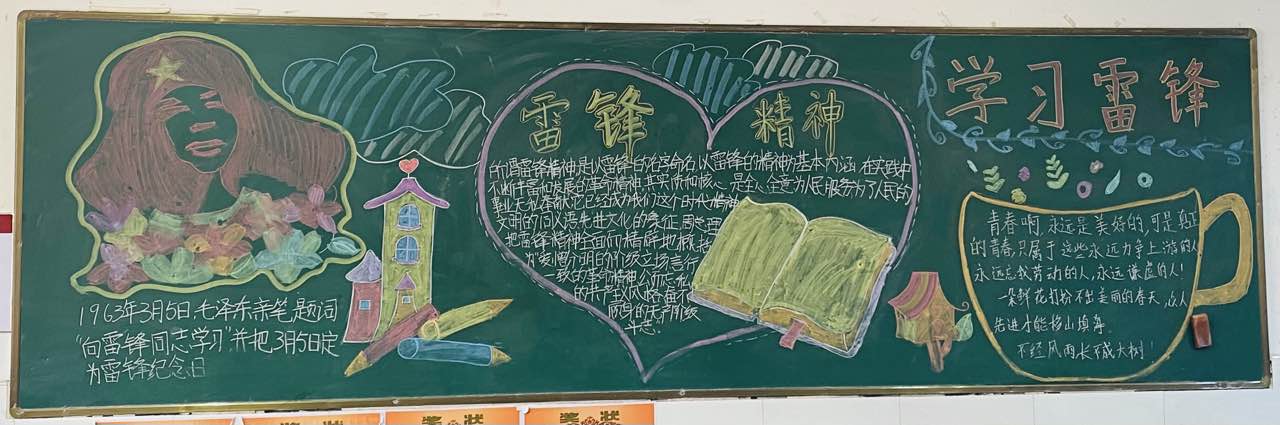 1963年3月5日,毛泽东亲笔题词
"向雷锋同志学习"并把3月5日定
为雷锋纪念日
雷锋精神
所谓雷锋精神是以雷锋的名字命名,以雷锋的精神为基本内涵,在实践中
不断丰富和发展的革命精神,其实质和核心是全心全意为人民服务为了人民的
事业无私奉献,它已经成为我们这个时代精神
文明的同义语,先进文化的象征,周总理
把雷锋精神全面而精辟地概括
为爱憎分明的阶级立场言行
一致的革命精神公而忘私
的共产主义风格奋不
顾身的无产阶级
斗志
学习雷锋
青春啊,永远是美好的,可是真正
的青春,只属于这些永远力争上游的人
永远忘我劳动的人,永远谦虚的人!
一朵鲜花打扮不出美丽的春天,众人
先进才能移山填海
不经风雨,长不成大树!
奖状
奖状
奖状